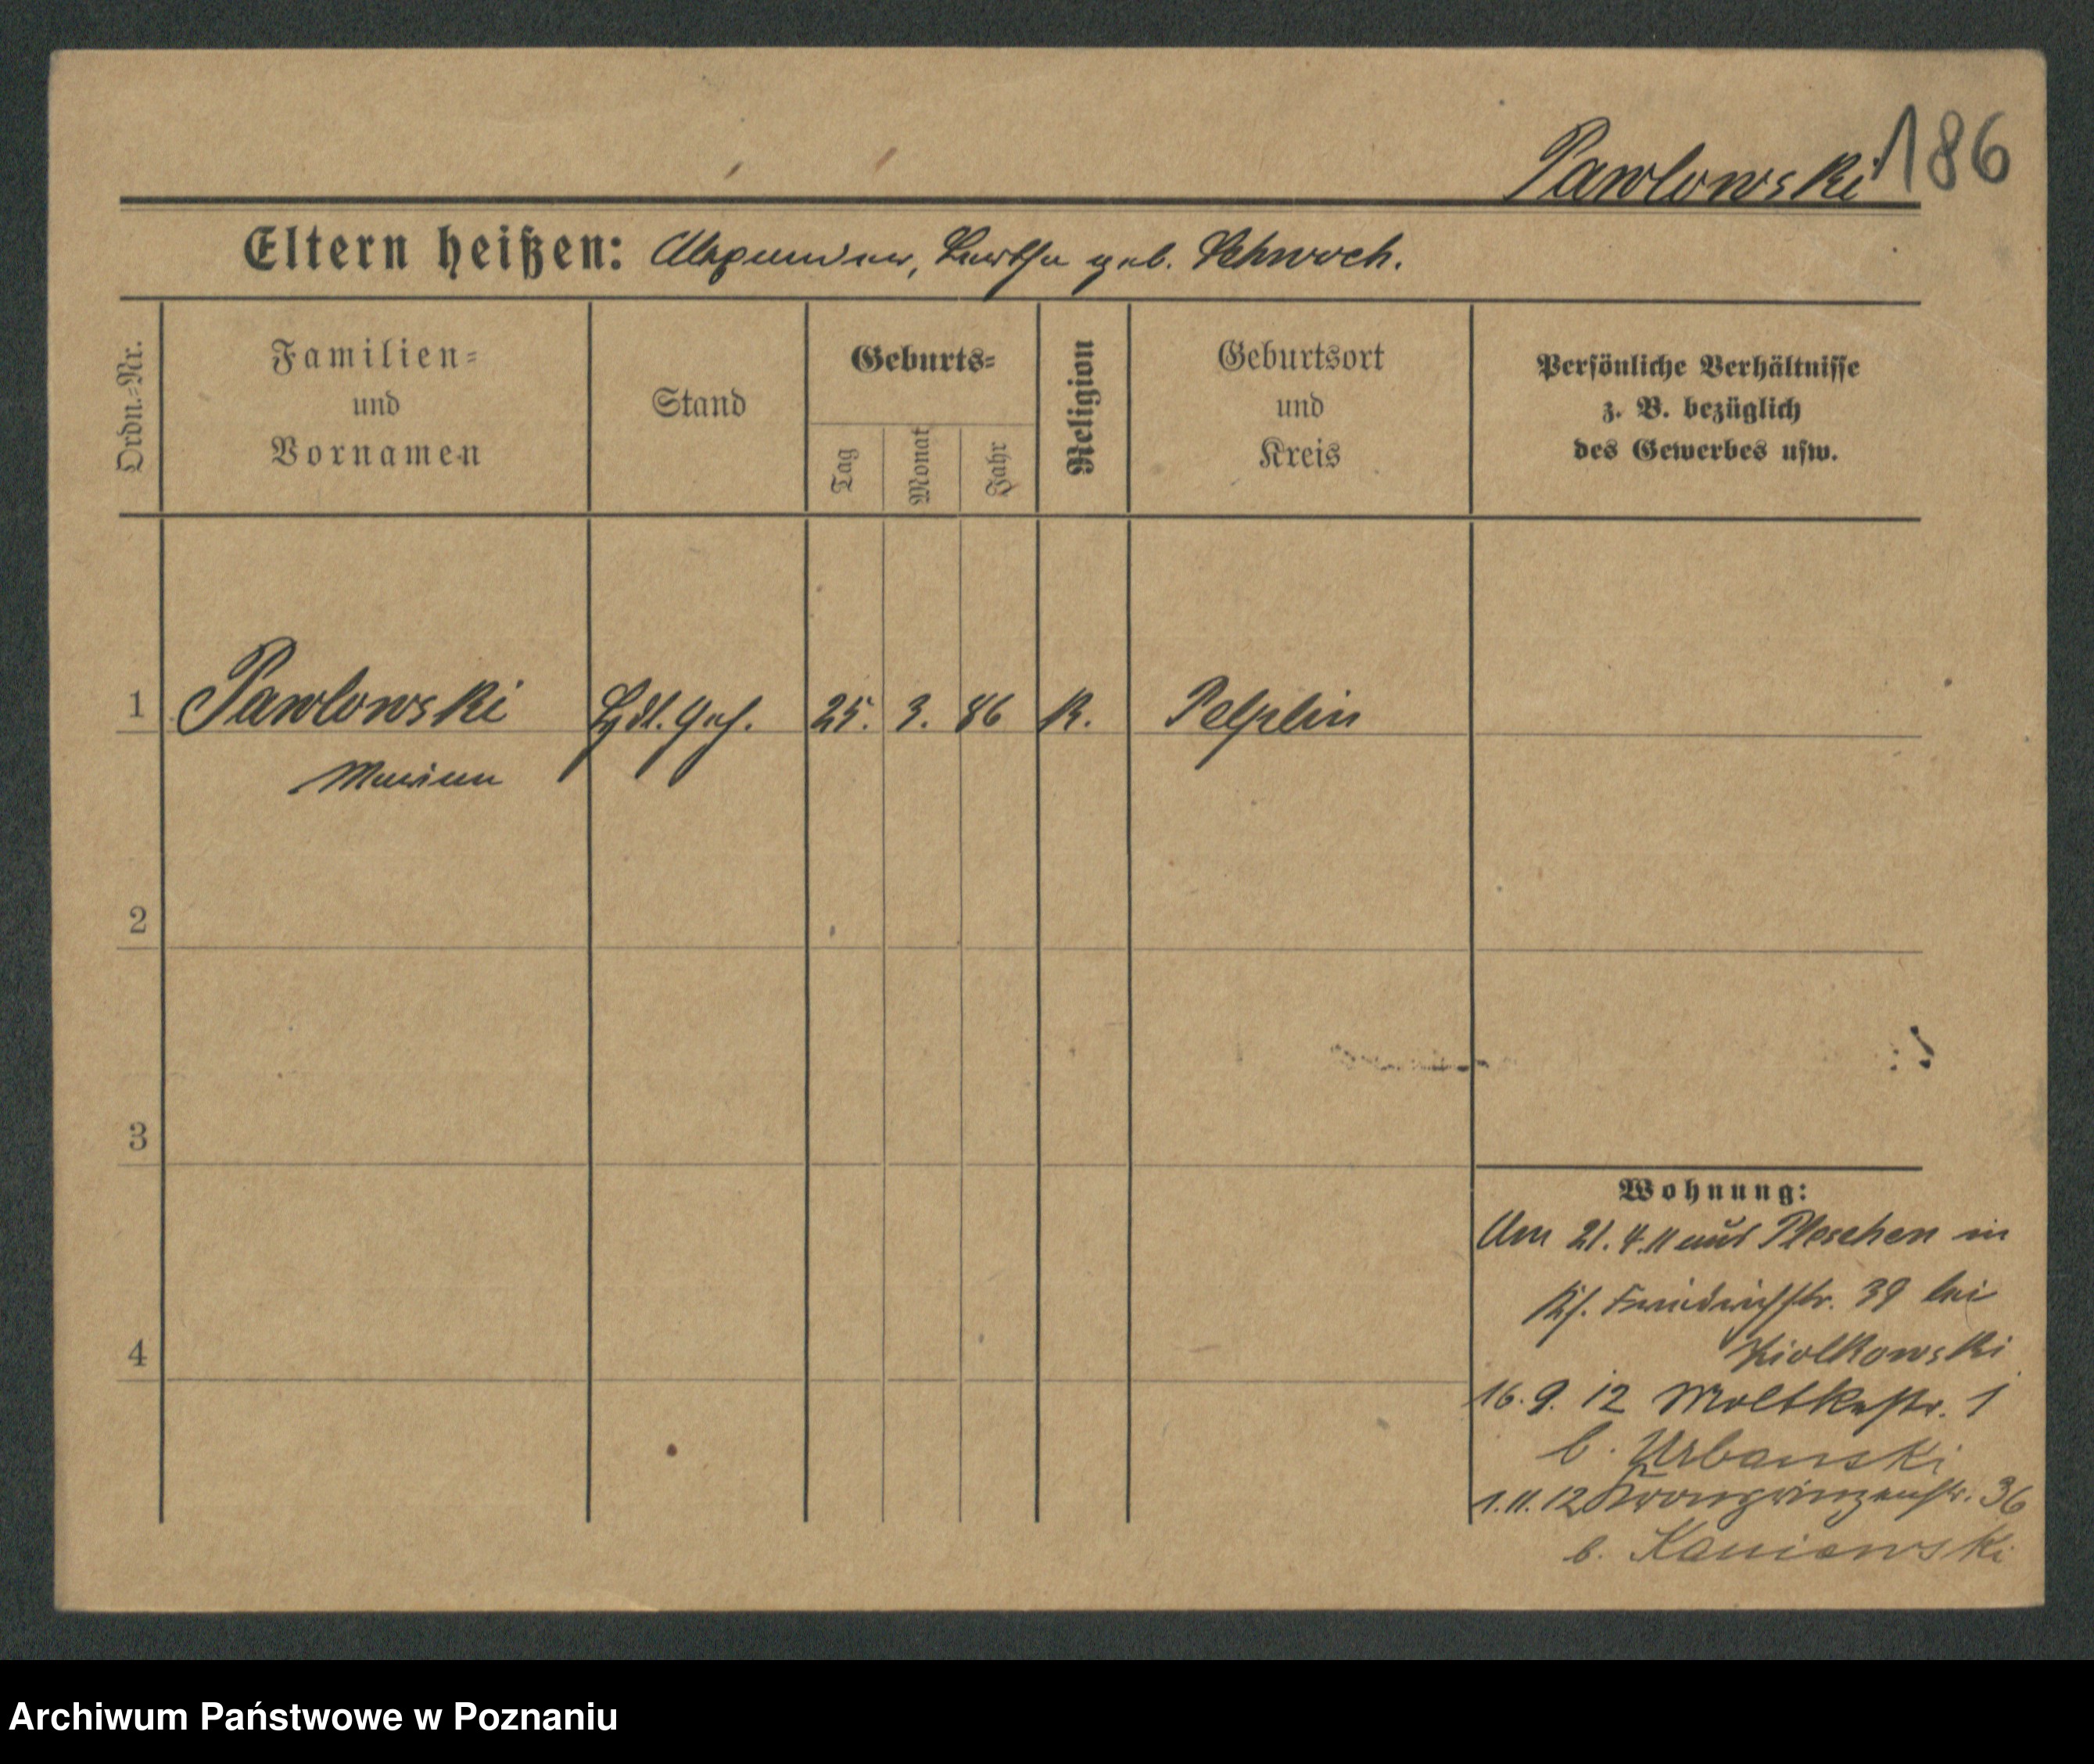 Pawlowski 186
Eltern heißen: Alexander, Bertha geb. Schwoch.
Ordn.-Nr.
Familien-
und
Vornamen
Stand
Geburts-
Tag
Monat
Jahr
Religion
Geburtsort
und
Kreis
Persönliche Verhältnisse
z. B. bezüglich
des Gewerbes usw.
1 Pawlowski Hdl. Geh. 25. 3. 86 K. Pelplin
Marian
2
3
4
Wohnung:
Am 21. 4. 11 aus Pleschen in
Friedrichstr. 39 bei
Ziolkowski
16. 9. 12 Moltkestr. 1
b. Urbanski
1. 11. 12 Kronprinzenstr. 36
b. Kaniewski
Archiwum Państwowe w Poznaniu